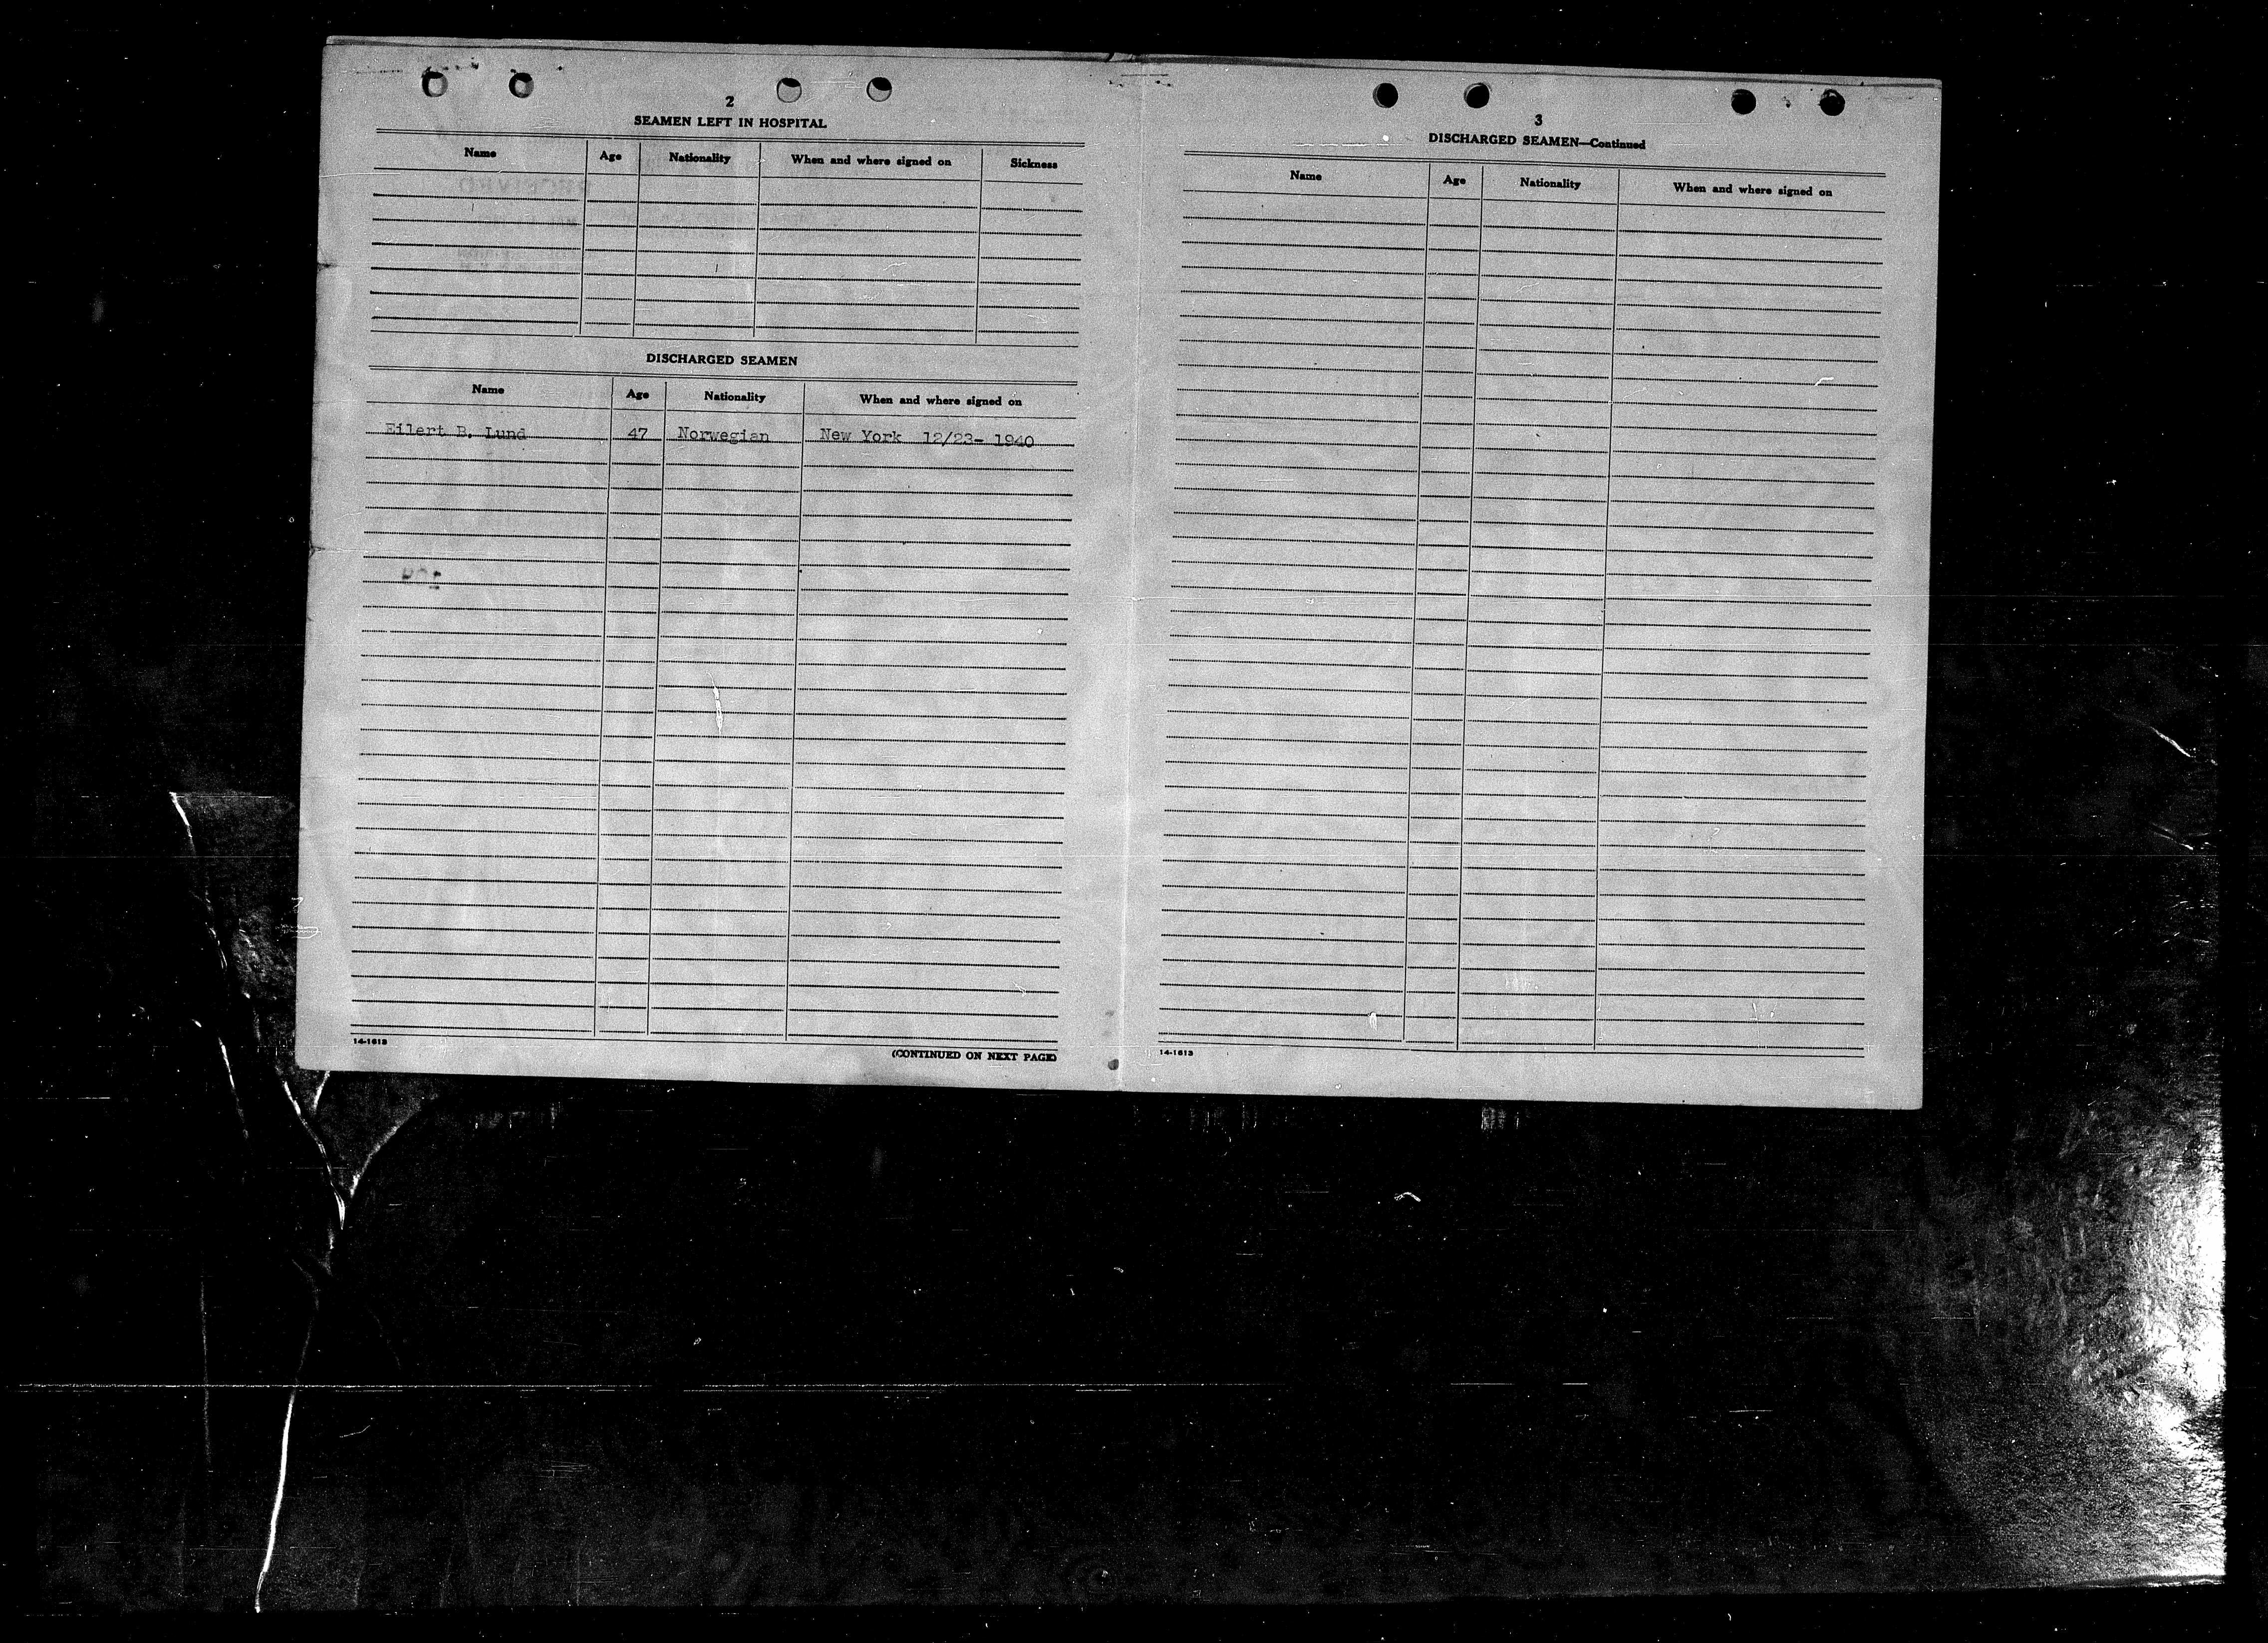 2
SEAMEN LEFT IN HOSPITAL
Name Age Nationality When and where signed on Sickness
DISCHARGED SEAMEN
Name Age Nationality When and where signed on
Eilert B. Lund 47 Norwegian New York 12/23- 1940
14-1613
(CONTINUED ON NEXT PAGE)
3
DISCHARGED SEAMEN—Continued
Name Age Nationality When and where signed on
14-1613